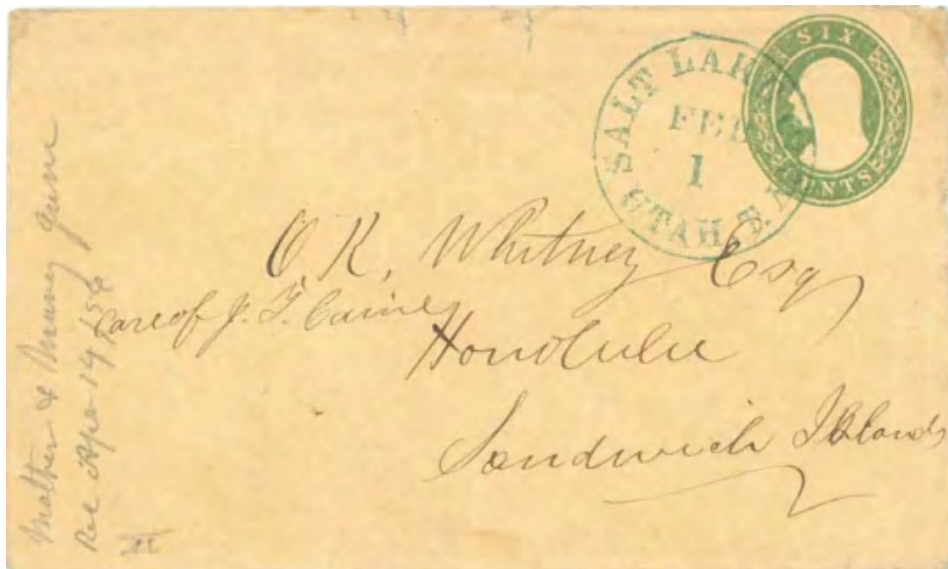 SIX
CENTS
SALT LAKE C.
FEB
1
UTAH. T.
O. K. Whitney Esq
care of J. T. Caine
Honolulu
Sandwich Islands
Mother &
Rec Apr 14 / 56